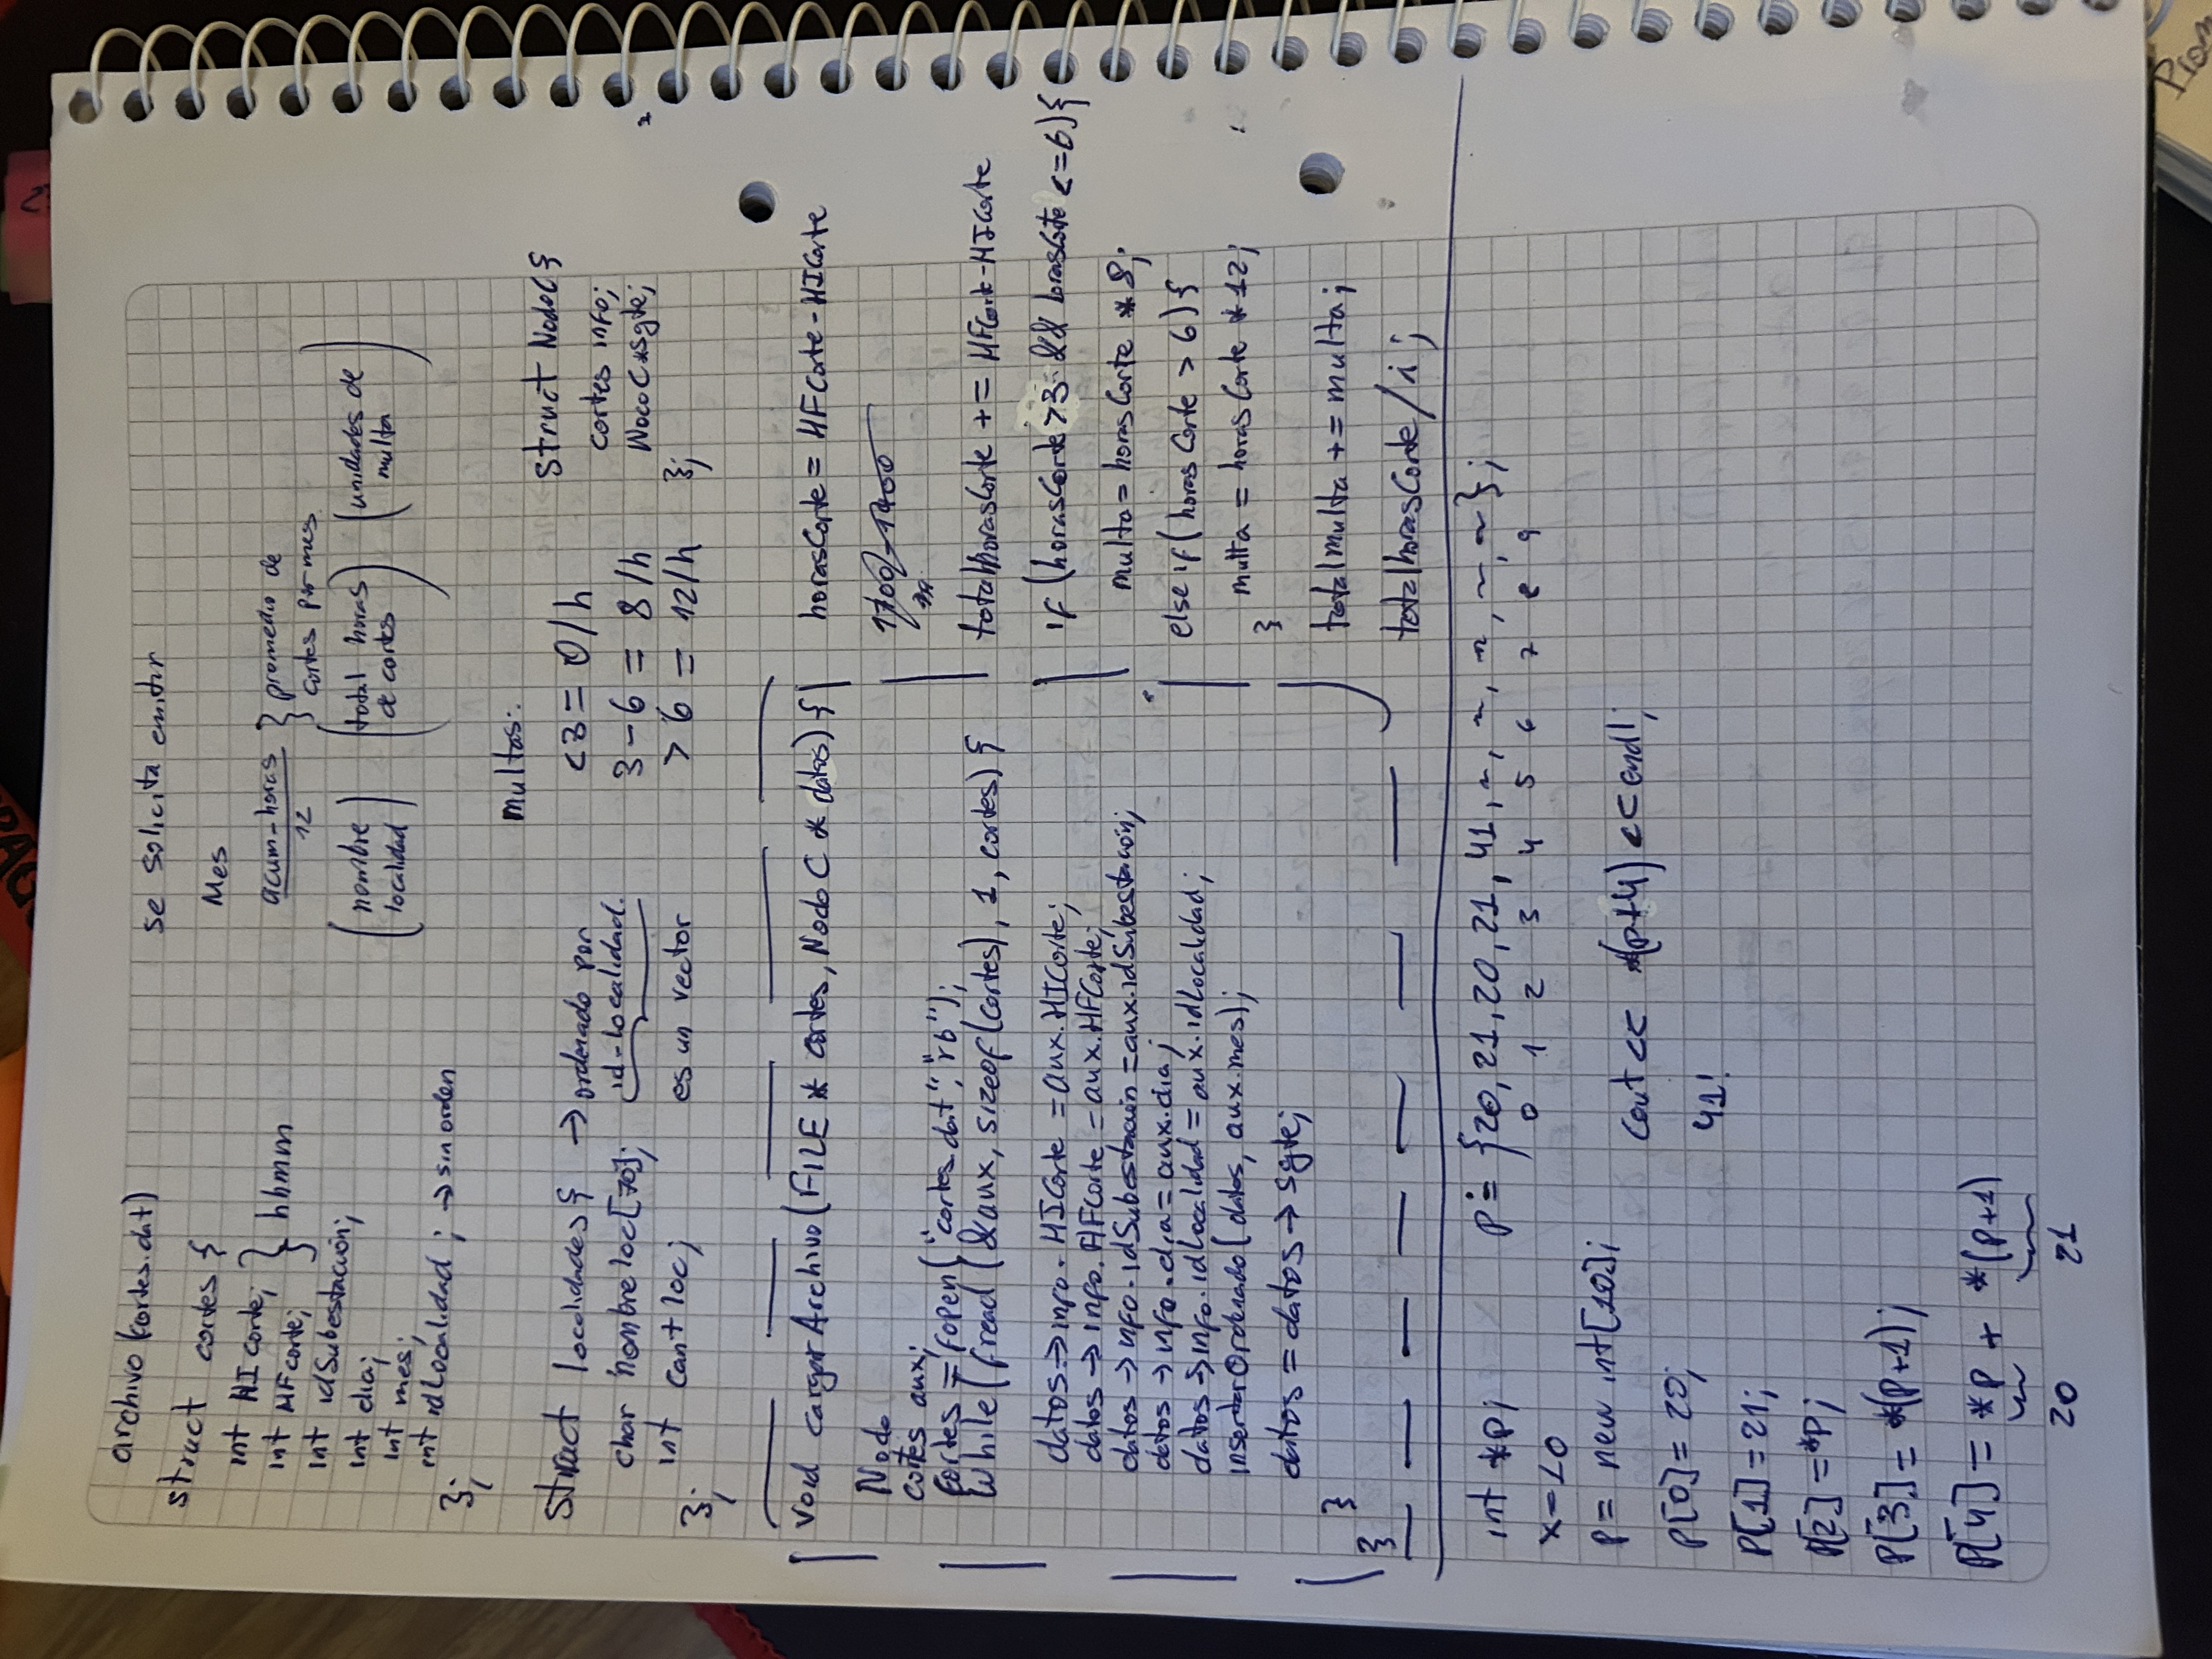 archivo (cortes.dat)
struct cortes {
int HIcorte;
int HFcorte; } hhmm
int idSubestación;
int dia;
int mes;
int idLocalidad; → sin orden
};
se solicita emitir
Mes
acum-horas
12
} promedio de
cortes por mes
(nombre
localidad)
(total horas
de cortes)
(unidades de
multa)
struct localidades { → ordenado por
char nombreloc[70]; id-localidad.
int cant loc; es un vector
};
multas:
<3 = 0/h
3-6 = 8/h
>6 = 12/h
struct NodoC {
cortes info;
NodoC *sgte;
};
void cargarArchivo (FILE * cortes, NodoC * datos) {
Nodo
cortes aux;
cortes = fopen("cortes.dat","rb");
while (fread (&aux, sizeof(cortes), 1, cortes) {
datos → info. HICorte = aux.HICorte;
datos → info. HFCorte = aux.HFCorte;
datos → info. idSubestación = aux.idSubestación;
datos → info.dia = aux.dia;
datos → info.idLocalidad = aux.idLocalidad;
insertarOrdenado(datos, aux.mes);
datos = datos → sgte;
}
}
horasCorte = HFCorte - HICorte
1700 - 1400
totalhorasCorte += HFCorte - HICorte
if (horasCorte >3 && horasCorte <=6){
multa = horasCorte * 8;
else if (horasCorte > 6){
multa = horasCorte * 12;
}
totalmulta += multa;
totalhorasCorte / i ;
int *p;
x=10
p = new int[10];
p[0] = 20;
P[1] = 21;
P[2] = *P;
P[3] = *(P+1);
P[4] = *p + *(p+1)
20 21
p = {20, 21, 20, 21, 41, ~, ~, ~, ~, ~};
0 1 2 3 4 5 6 7 8 9
cout << *(p+4) << endl;
41!